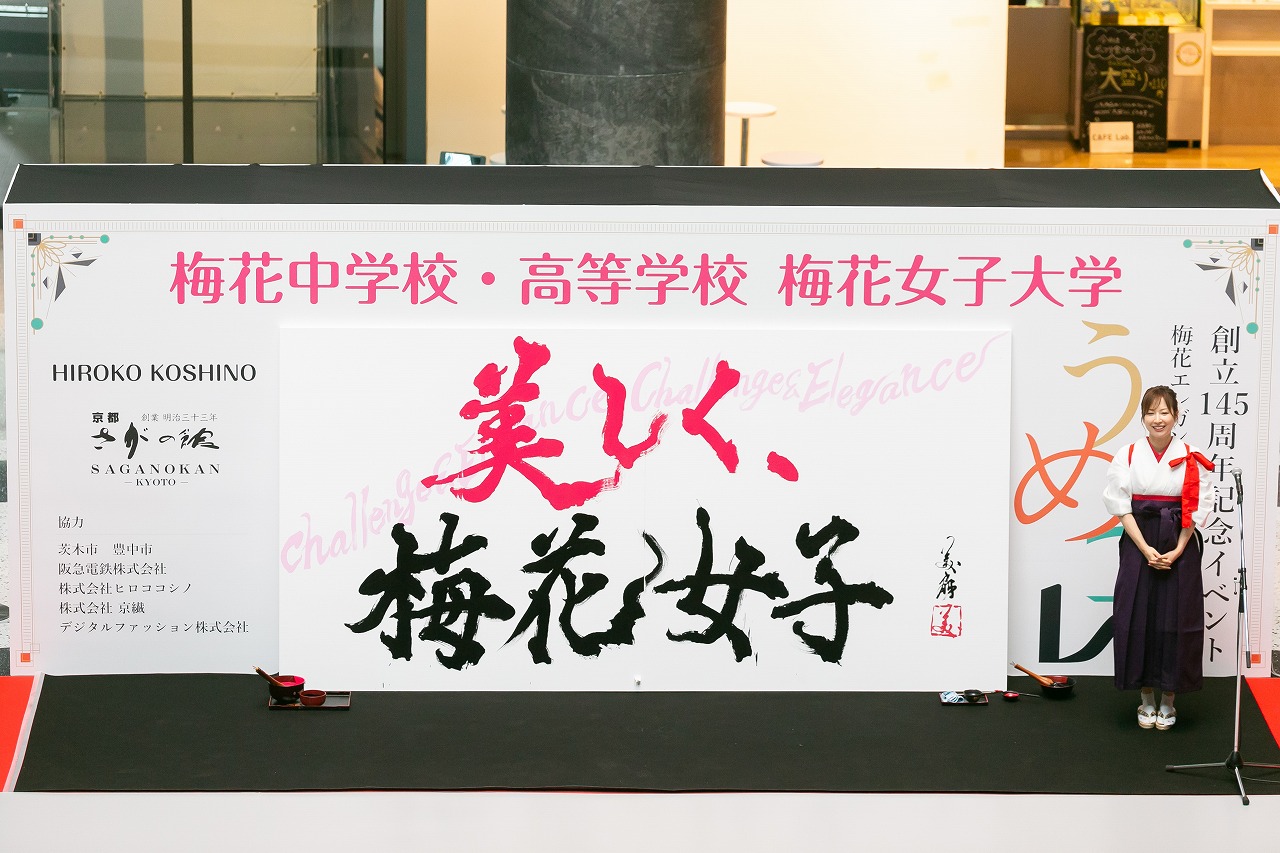 梅花中学校・高等学校 梅花女子大学
HIROKO KOSHINO
京都
創業 明治三十三年
さがの館
SAGANOKAN
–KYOTO–
協力
茨木市 豊中市
阪急電鉄株式会社
株式会社ヒロココシノ
株式会社 京繊
デジタルファッション株式会社
Challenge&Elegance Challenge&Elegance
美しく、
梅花女子
美
創立145周年記念イベント
梅花エレガン
うめ
コレ
大盛り
CAFE Lab.